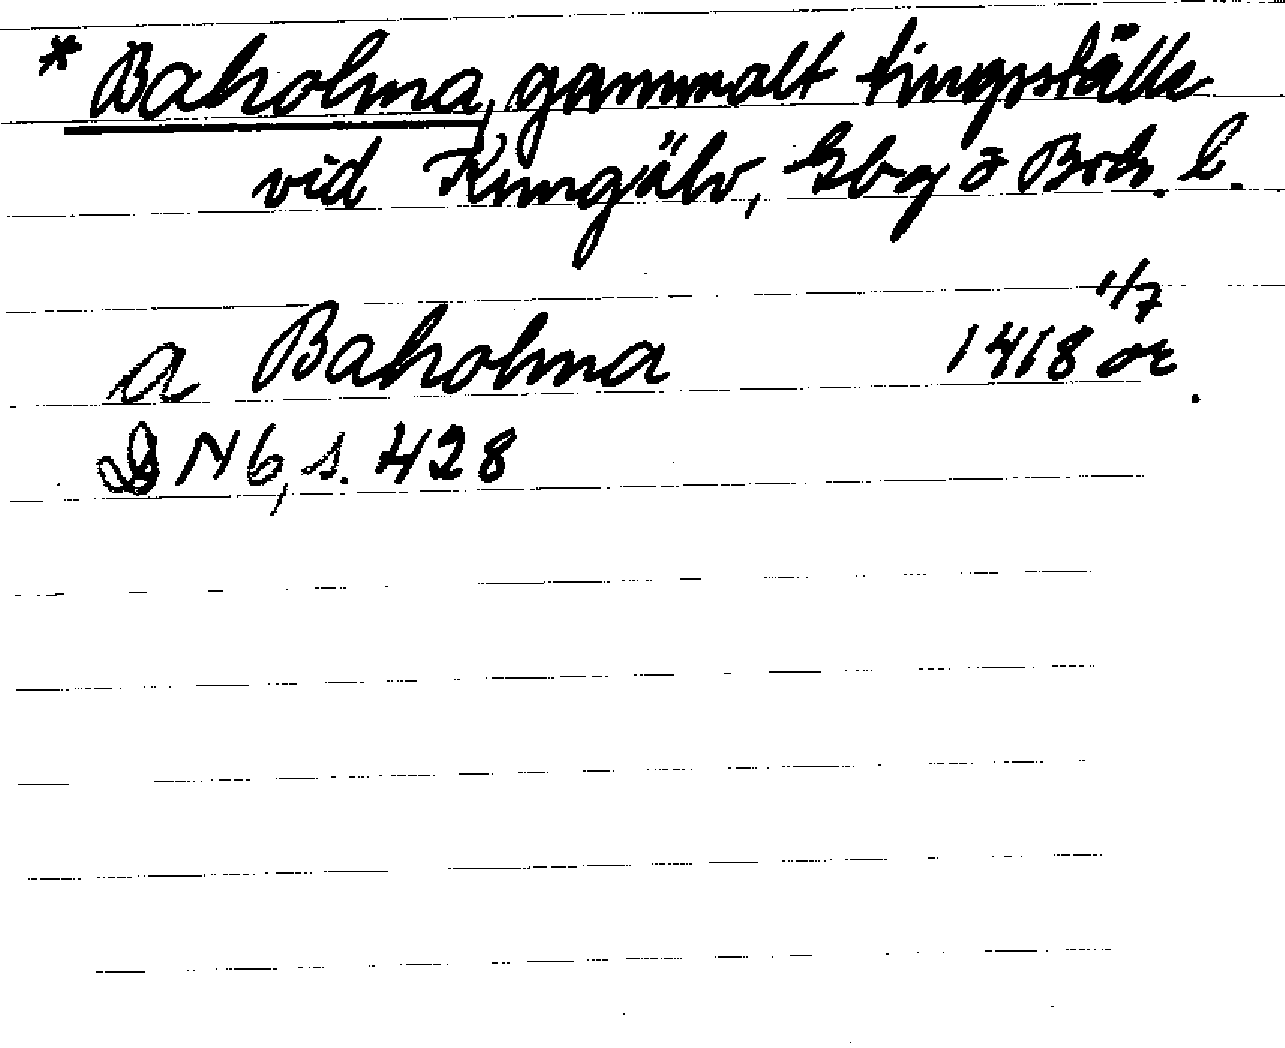 * Baholma, gammalt tingsställe
vid Kungälv, Gbg o Boh. l.
a Baholma 1418 1/7 or.
DN 6, s. 428